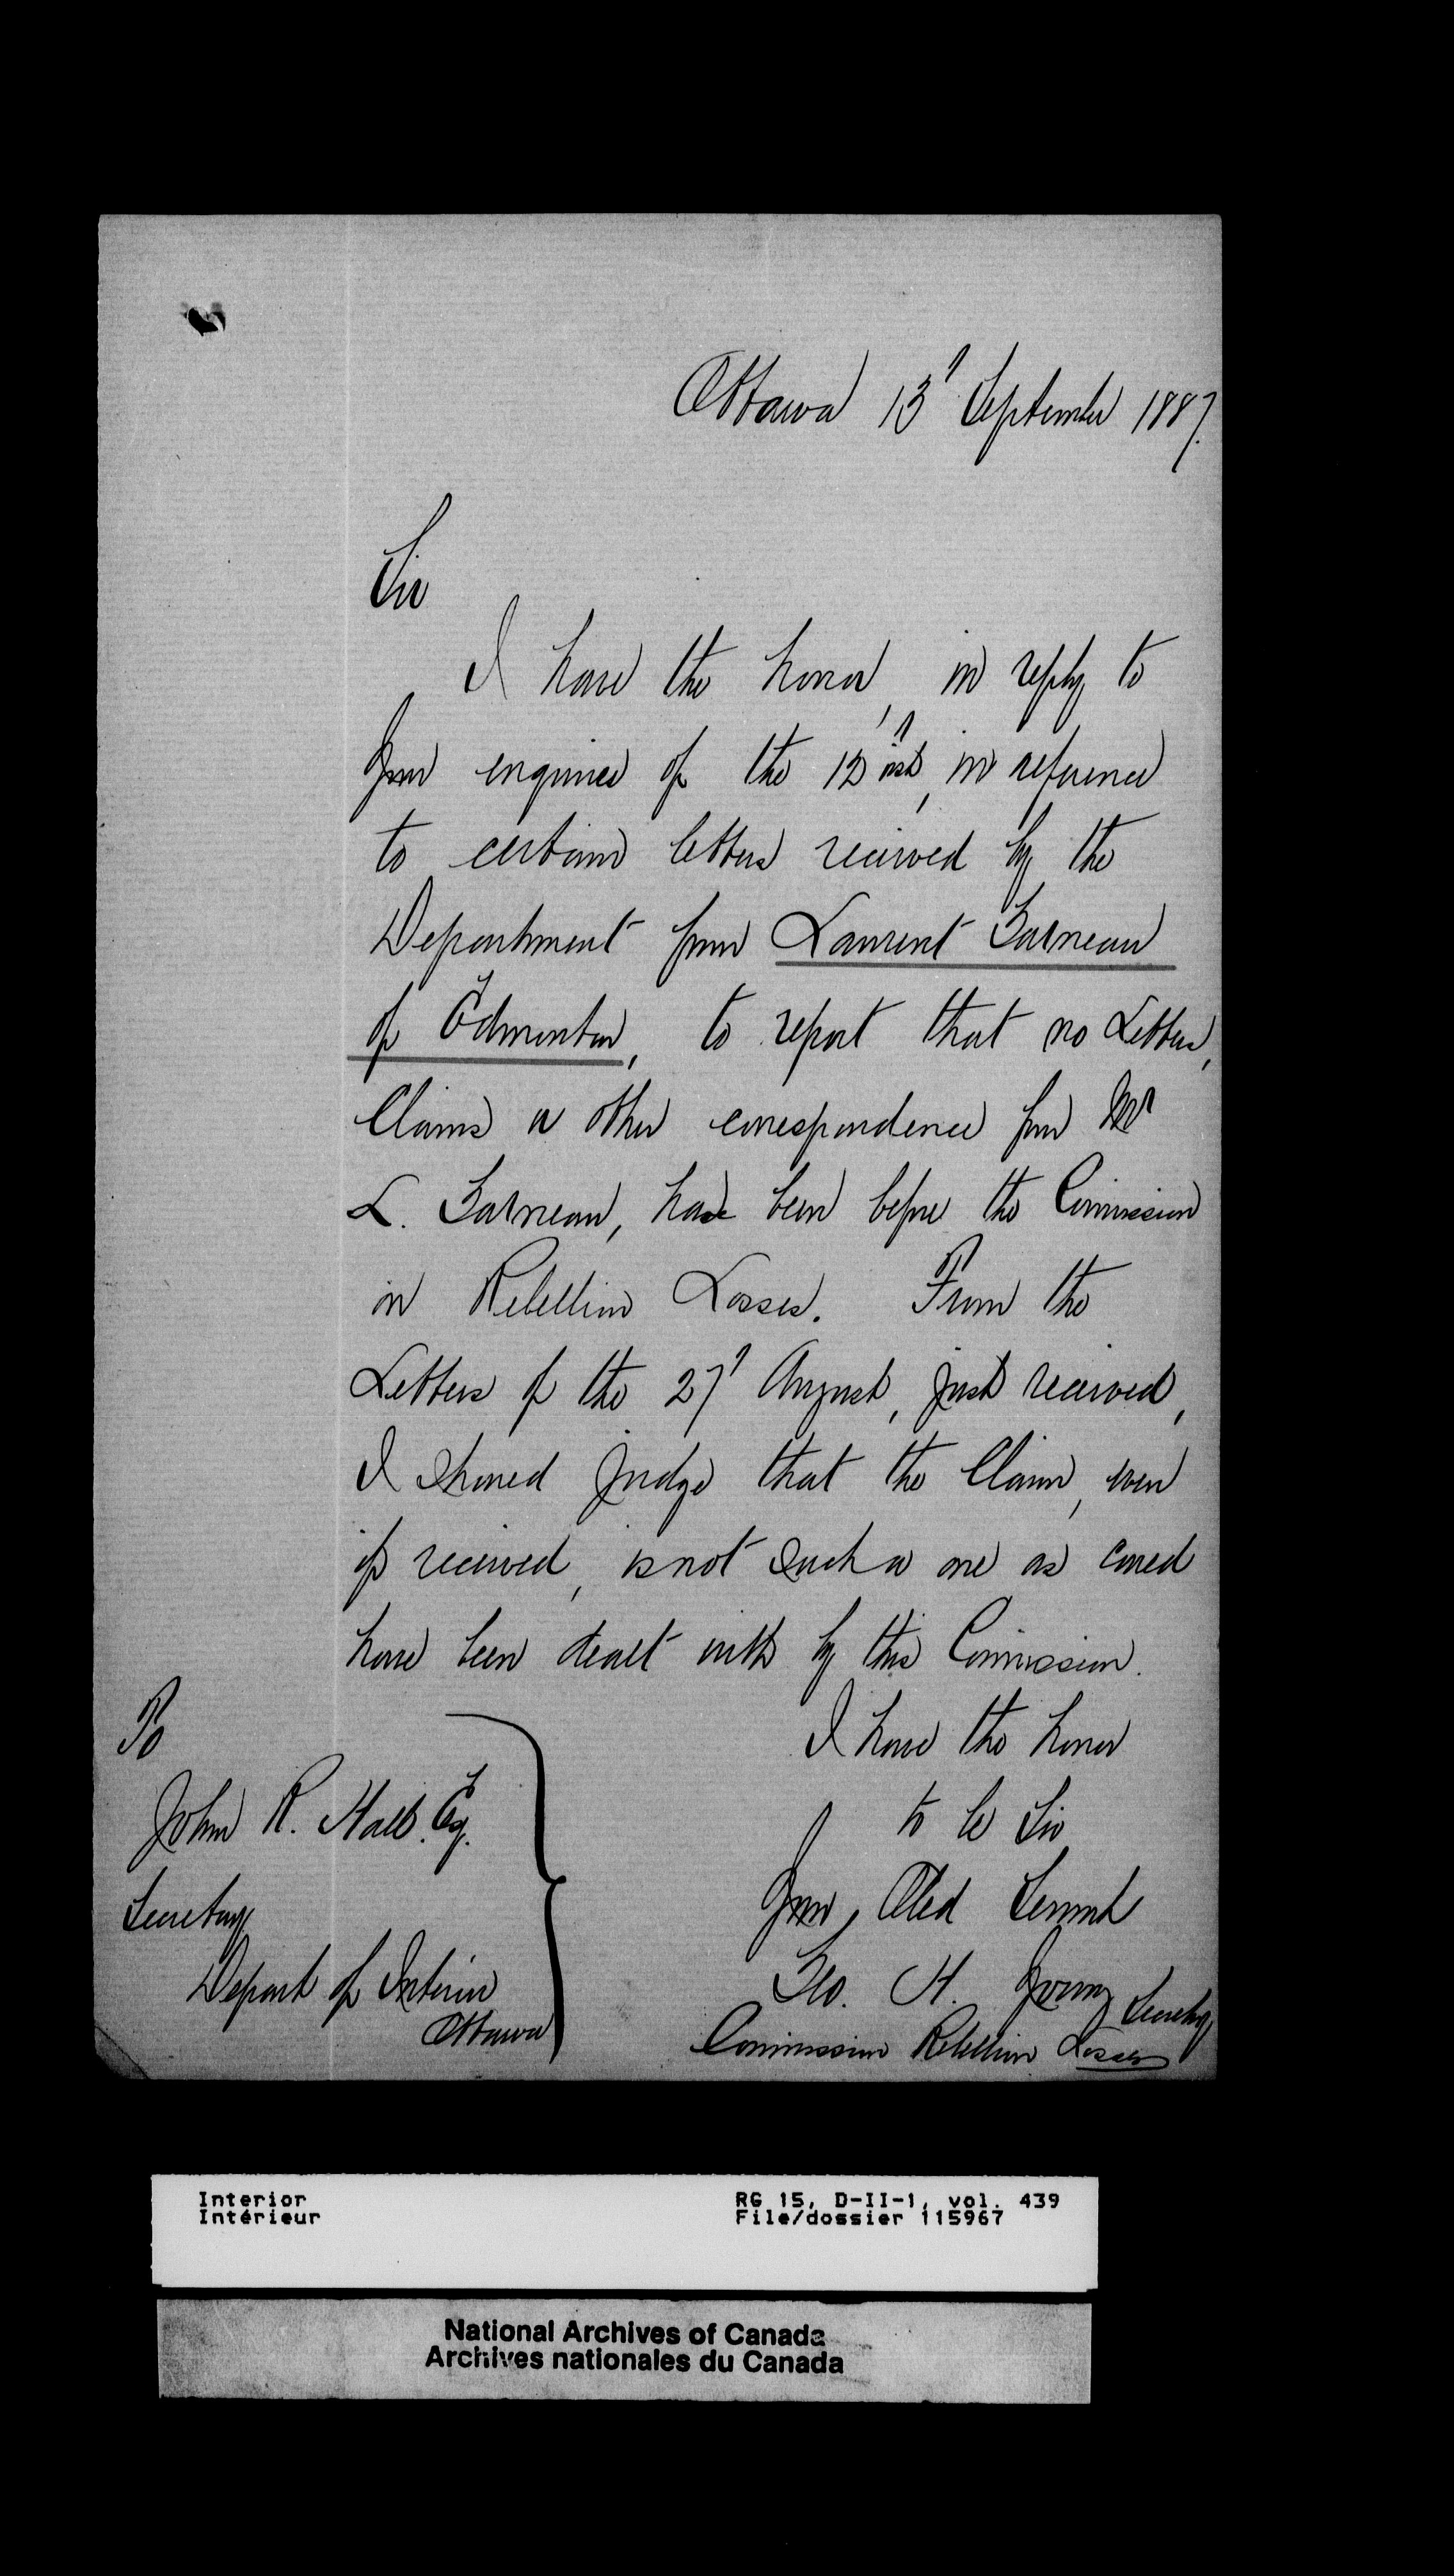 Ottawa 13' September 1887.
Sir
I have the honor, in reply to
your enquiries of the 12' inst, in reference
to certain letters received by the
Department from Laurent Garneau
of Edmonton, to report that no Letters,
Claims or other correspondence from Mr
L. Garneau, have been before the Commission
on Rebellion Losses. From the
Letters of the 27' August, just received,
I should judge that the Claim, even
if received, is not such a one as could
have been dealt with by this Commission.
I have the honor
to be Sir
Your Obed Servant
Geo. H. Young Secretary
Commission Rebellion Losses
To
John R. Hall. Esq.
Secretary
Depart of Interior
Ottawa
Interior
Intérieur
RG 15, D-II-1, vol. 439
File/dossier 115967
National Archives of Canada
Archives nationales du Canada